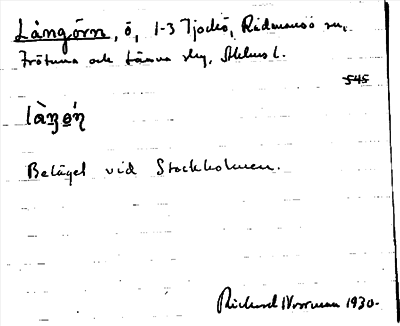 Långörn, ö, 1-3 Tjockö, Rådmansö sn,
Frötuna och Länna skg, Sthlms l.
545
Beläget vid Stockholmen.
Richard Norrman 1930.